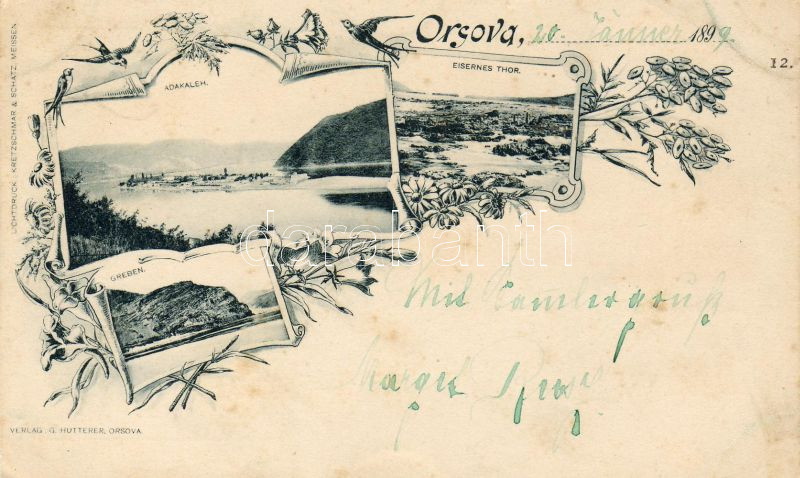 Orsova, 20. Jänner 1899.
12.
ADAKALEH.
EISERNES THOR.
GREBEN.
Mit Samlergruß
Margit
VERLAG G. HUTTERER, ORSOVA.
LICHTDRUCK: KRETZSCHMAR & SCHATZ, MEISSEN
darabanth